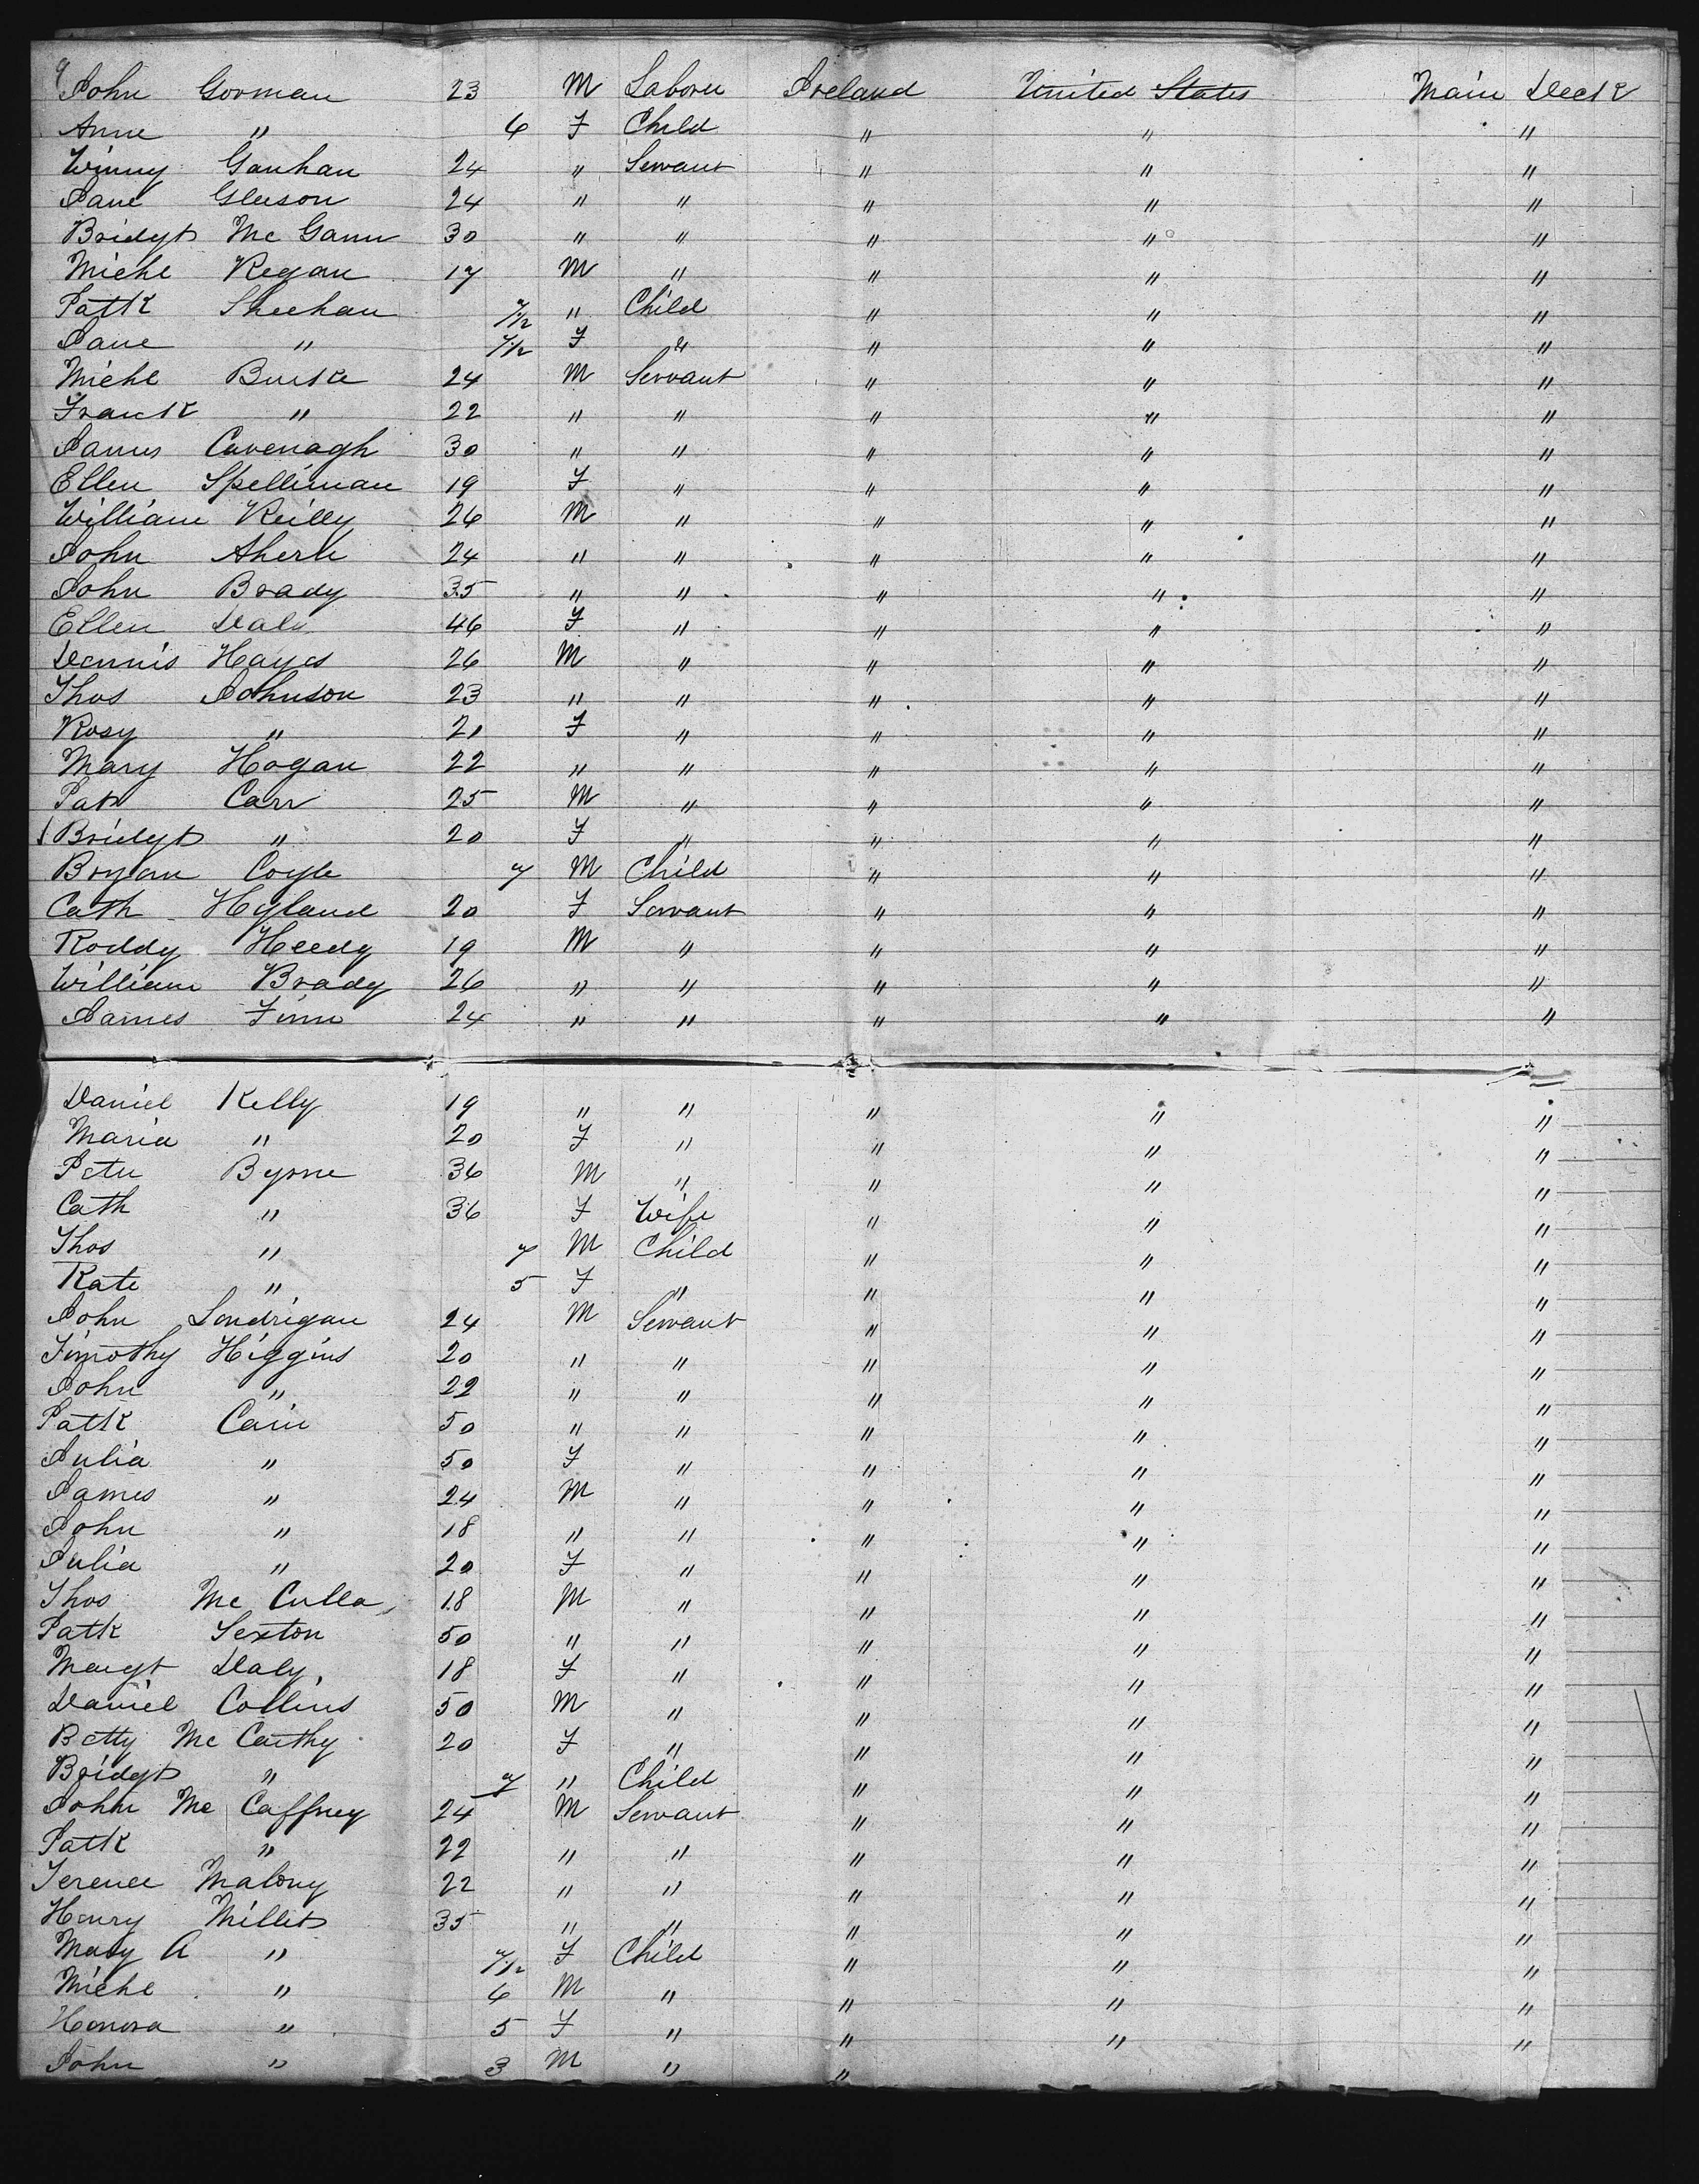 John Gorman 23 M Laborer Ireland United States Main Deck
Anne " 6 F Child " " "
Winny Ganhan 24 " Servant " " "
Jane Gleeson 24 " " " " "
Bridgt Mc Gann 30 " " " " "
Michl Regan 17 M " " " "
Patk Sheehan 7/12 " Child " " "
Jane " 7/12 F " " " "
Michl Burke 24 M Servant " " "
Franck " 22 " " " " "
James Cavenagh 30 " " " " "
Ellen Spelliman 19 F " " " "
William Reilly 26 M " " " "
John Ahern 24 " " " " "
John Brady 35 " " " " "
Ellen Daly 46 F " " " "
Dennis Hayes 26 M " " " "
Thos Johnson 23 " " " " "
Rosy " 21 F " " " "
Mary Hogan 22 " " " " "
Pat Carr 25 M " " " "
Bridgt " 20 F " " " "
Bryan Coyle 7 M Child " " "
Cath Hyland 20 F Servant " " "
Roddy Heedy 19 M " " " "
William Brady 26 " " " " "
James Finn 24 " " " " "
Daniel Kelly 19 " " " " "
Maria " 20 F " " " "
Peter Byrne 36 M " " " "
Cath " 36 F Wife " " "
Thos " 7 M Child " " "
Kate " 5 F " " " "
John Londrigan 24 M Servant " " "
Timothy Higgins 20 " " " " "
John " 22 " " " " "
Patk Cain 50 " " " " "
Julia " 50 F " " " "
James " 24 M " " " "
John " 18 " " " " "
Julia " 20 F " " " "
Thos Mc Culla 18 M " " " "
Patk Sexton 50 " " " " "
Margt Daly 18 F " " " "
Daniel Collins 50 M " " " "
Betty Mc Carthy 20 F " " " "
Bridgt " 7 " Child " " "
John Mc Caffney 24 M Servant " " "
Patk " 22 " " " " "
Terence Malony 22 " " " " "
Henry Millet 35 " " " " "
Mary A " 7/12 F Child " " "
Michl " 6 M " " " "
Honora " 5 F " " " "
John " 3 M " "